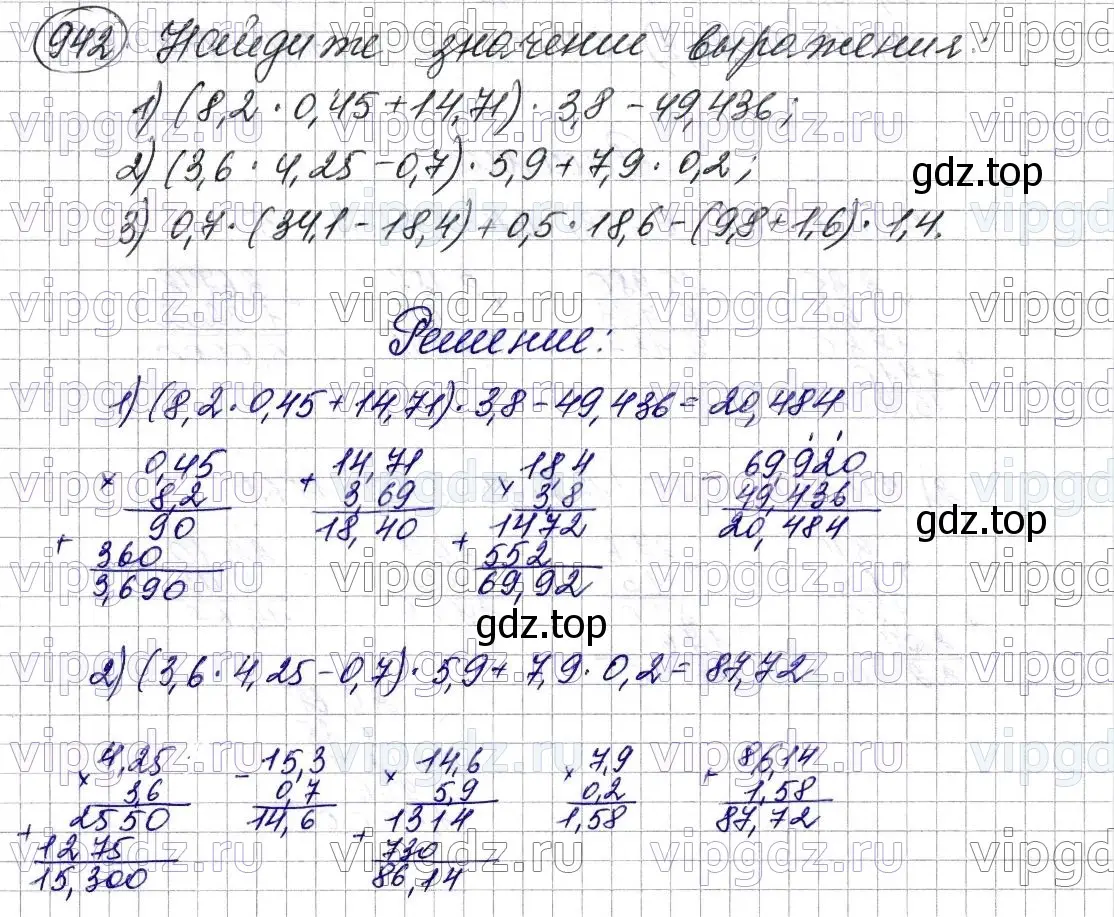 942 Найдите значении выражения:
1) (8,2 · 0,45 + 14,71) · 3,8 - 49,436;
2) (3,6 · 4,25 - 0,7) · 5,9 + 7,9 · 0,2;
gdz.top
3) 0,7 · (34,1 - 18,4) + 0,5 · 18,6 - (9,8 + 1,6) · 1,4.
Решение:
1) (8,2 · 0,45 + 14,71) · 3,8 - 49,436 = 20,484
0,45 14,71 18,4 69,920
× 8,2 + 3,69 × 3,8 - 49,436
90 18,40 1472 20,484
gdz.top
+ 360 + 552
3,690 69,92
gdz.top
2) (3,6 · 4,25 - 0,7) · 5,9 + 7,9 · 0,2 = 87,72
4,25 15,3 14,6 7,9 86,14
× 3,6 - 0,7 × 5,9 × 0,2 + 1,58
2550 14,6 1314 1,58 87,72
+ 1275 + 730
15,300 86,14
vipgdz.ru